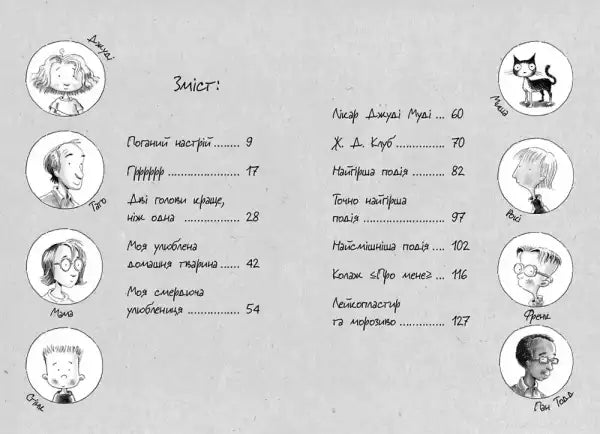 Джуді
Зміст:
Поганий настрій........ 9
Ґррррр ...................... 17
Дві голови краще,
ніж одна ................. 28
Моя улюблена
домашня тварина...... 42
Моя смердюча
улюблениця ................ 54
Тато
Мама
Лікар Джуді Муді ... 60
Ж. Д. Клуб ............. 70
Найгірша подія ........ 82
Точно найгірша
подія ....................... 97
Найсмішніша подія .... 102
Колаж «Про мене» ... 116
Лейкопластир
та морозиво ............. 127
Миша
Рокі
Френк
Пан Тодд